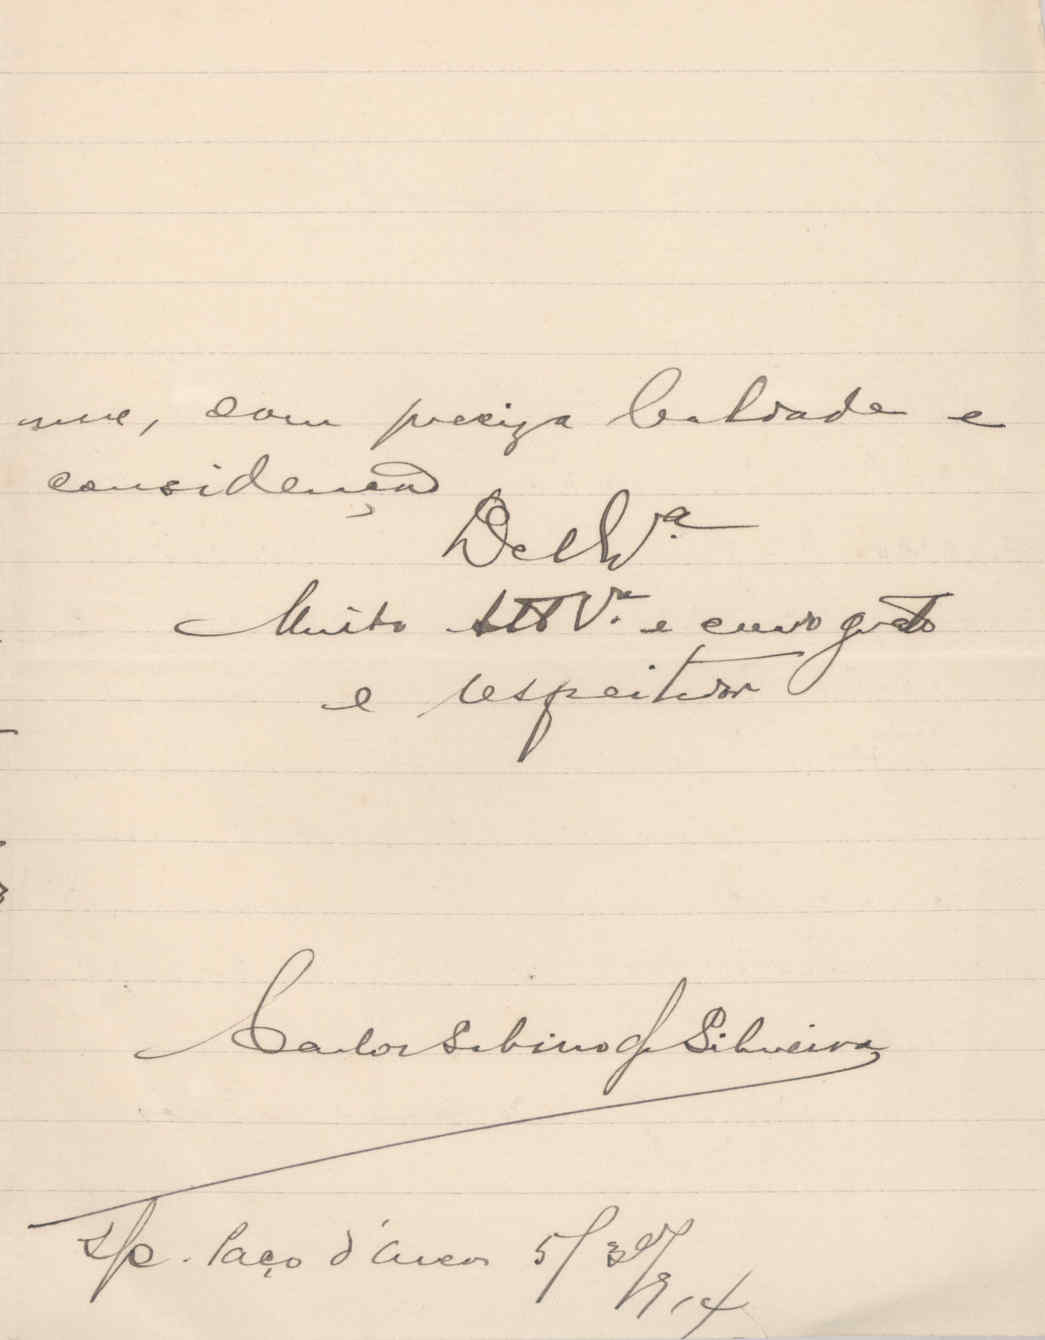 me, com preciza lealdade e
consideração
De V.ª
Muito Att.º V.ºr e creado grato
e respeitador
Carlos Sabino da Silveira
S/c. Paço d'Arcos 5/3º/914